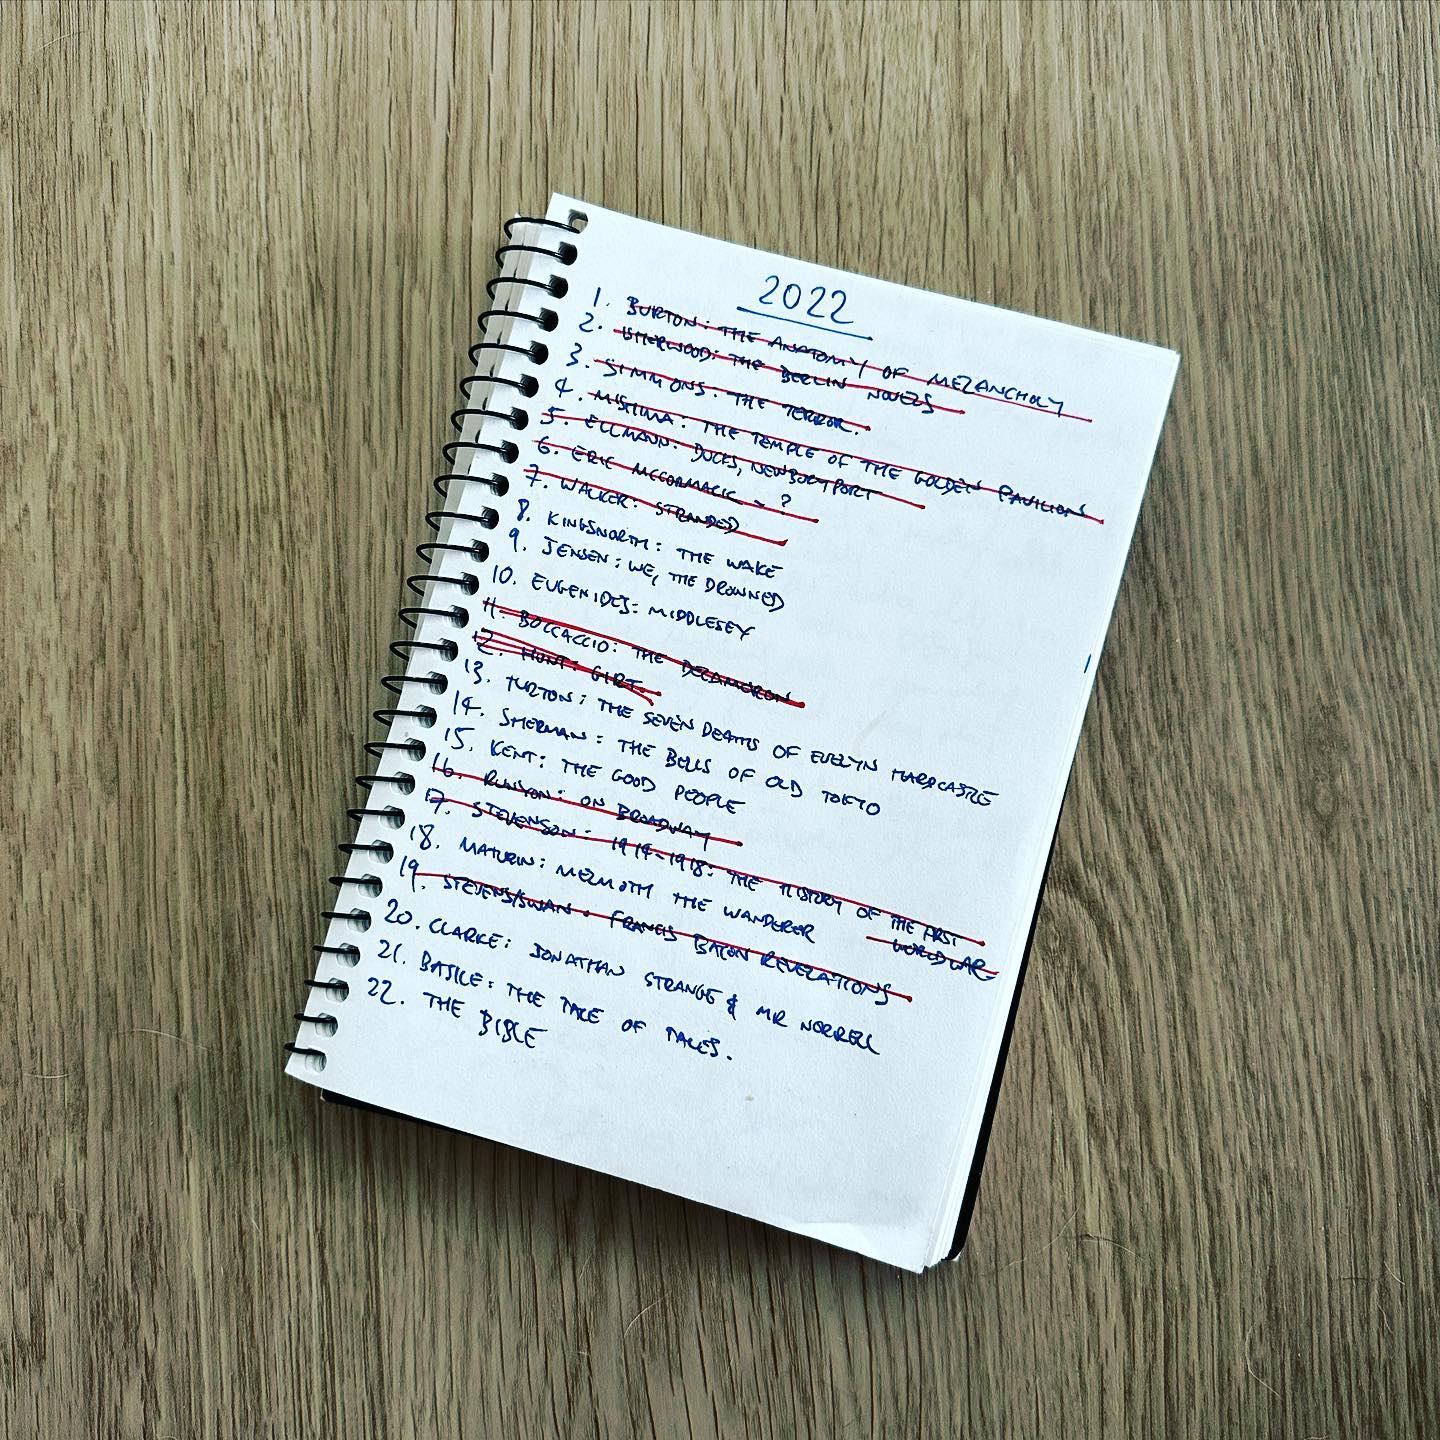 2022
1. BURTON: THE ANATOMY OF MELANCHOLY
2. ISHERWOOD: THE BERLIN NOVELS
3. SIMMONS: THE TERROR.
4. MISHIMA: THE TEMPLE OF THE GOLDEN PAVILION
5. ELLMANN: DUCKS, NEWBURYPORT
6. ERIC MCCORMACK - ?
7. WALKER: STRANDED
8. KINGSNORTH: THE WAKE
9. JENSEN: WE, THE DROWNED
10. EUGENIDES: MIDDLESEX
11. BOCCACCIO: THE DECAMERON
12. HUNT: GIRT.
13. TURTON: THE SEVEN DEATHS OF EVELYN HARDCASTLE
14. SHERMAN: THE BELLS OF OLD TOKYO
15. KENT: THE GOOD PEOPLE
16. RUNYON: ON BROADWAY
17. STEVENSON: 1914-1918: THE HISTORY OF THE FIRST
WORLD WAR
18. MATURIN: MELMOTH THE WANDERER
19. STEVENS/SWAN: FRANCIS BACON REVELATIONS
20. CLARKE: JONATHAN STRANGE & MR NORRELL
21. BASILE: THE TALE OF TALES.
22. THE BIBLE